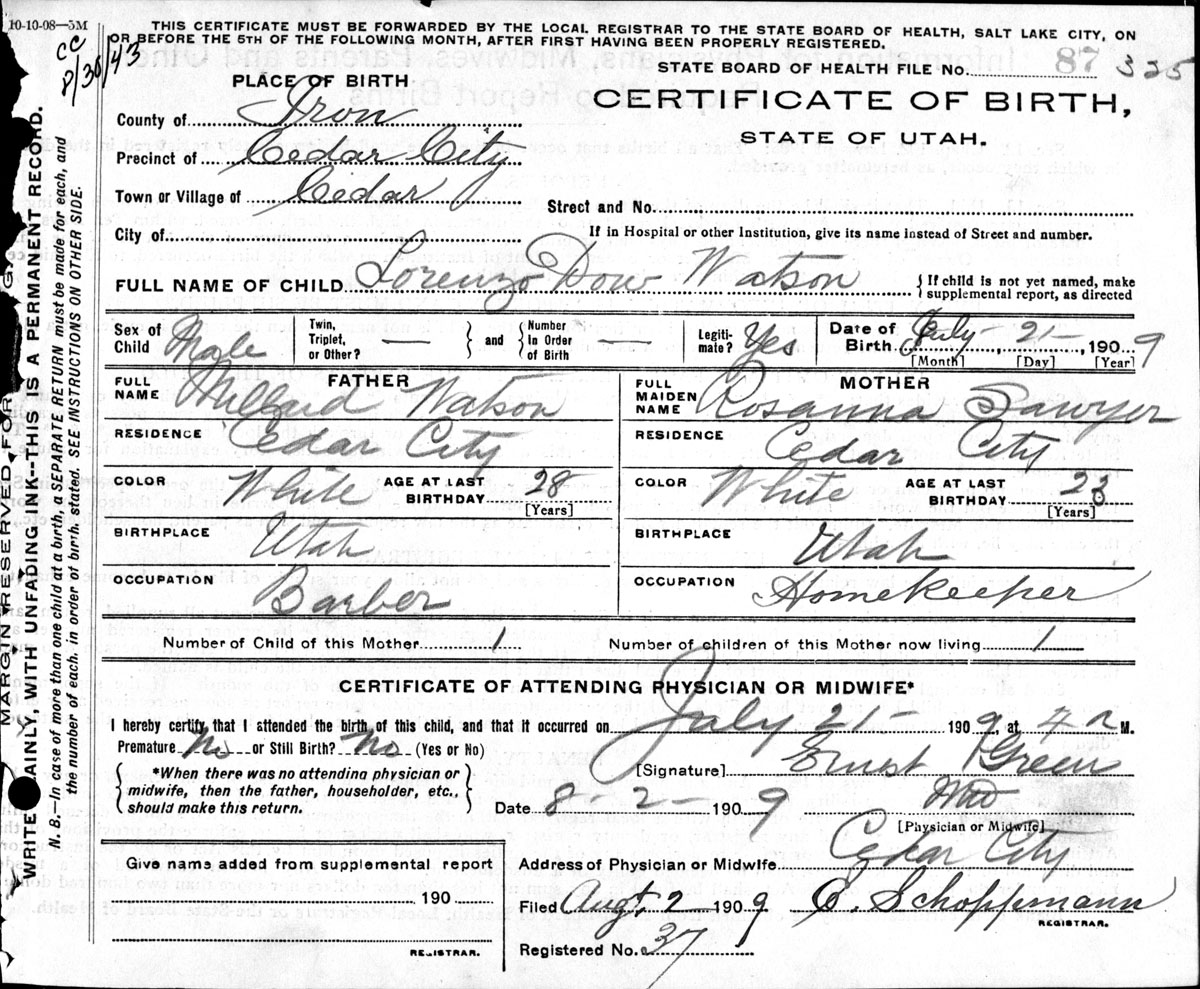 10-10-08—5M
THIS CERTIFICATE MUST BE FORWARDED BY THE LOCAL REGISTRAR TO THE STATE BOARD OF HEALTH, SALT LAKE CITY, ON
OR BEFORE THE 5TH OF THE FOLLOWING MONTH, AFTER FIRST HAVING BEEN PROPERLY REGISTERED.
CC
8/30/43
STATE BOARD OF HEALTH FILE No. 325
PLACE OF BIRTH
CERTIFICATE OF BIRTH,
STATE OF UTAH.
County of Iron
Precinct of Cedar City
Town or Village of Cedar
Street and No.
City of
If in Hospital or other Institution, give its name instead of Street and number.
FULL NAME OF CHILD Lorenzo Dow Watson { If child is not yet named, make supplemental report, as directed
Sex of Child Male
Twin, Triplet, or Other? — } and { Number In Order of Birth —
Legitimate? Yes
Date of Birth July 21—, 1909
[Month] [Day] [Year]
FATHER
FULL NAME Millard Watson
MOTHER
FULL MAIDEN NAME Rosanna Sawyer
RESIDENCE Cedar City
RESIDENCE Cedar City
COLOR White AGE AT LAST BIRTHDAY 28 [Years]
COLOR White AGE AT LAST BIRTHDAY 23 [Years]
BIRTHPLACE Utah
BIRTHPLACE Utah
OCCUPATION Barber
OCCUPATION Homekeeper
Number of Child of this Mother 1
Number of children of this Mother now living 1
CERTIFICATE OF ATTENDING PHYSICIAN OR MIDWIFE*
I hereby certify that I attended the birth of this child, and that it occurred on July 21— 1909, at 4 a M.
Premature No or Still Birth? No (Yes or No)
{ *When there was no attending physician or midwife, then the father, householder, etc., should make this return. }
[Signature] Ernest Green
Date 8-2- 1909 MD
[Physician or Midwife]
Give name added from supplemental report
190
REGISTRAR.
Address of Physician or Midwife Cedar City
Filed Augt. 2 — 1909 E. Schoppmann
REGISTRAR.
Registered No. 37
MARGIN RESERVED FOR
WRITE PLAINLY, WITH UNFADING INK--THIS IS A PERMANENT RECORD.
N. B.—In case of more than one child at a birth, a SEPARATE RETURN must be made for each, and
the number of each, in order of birth, stated. SEE INSTRUCTIONS ON OTHER SIDE.